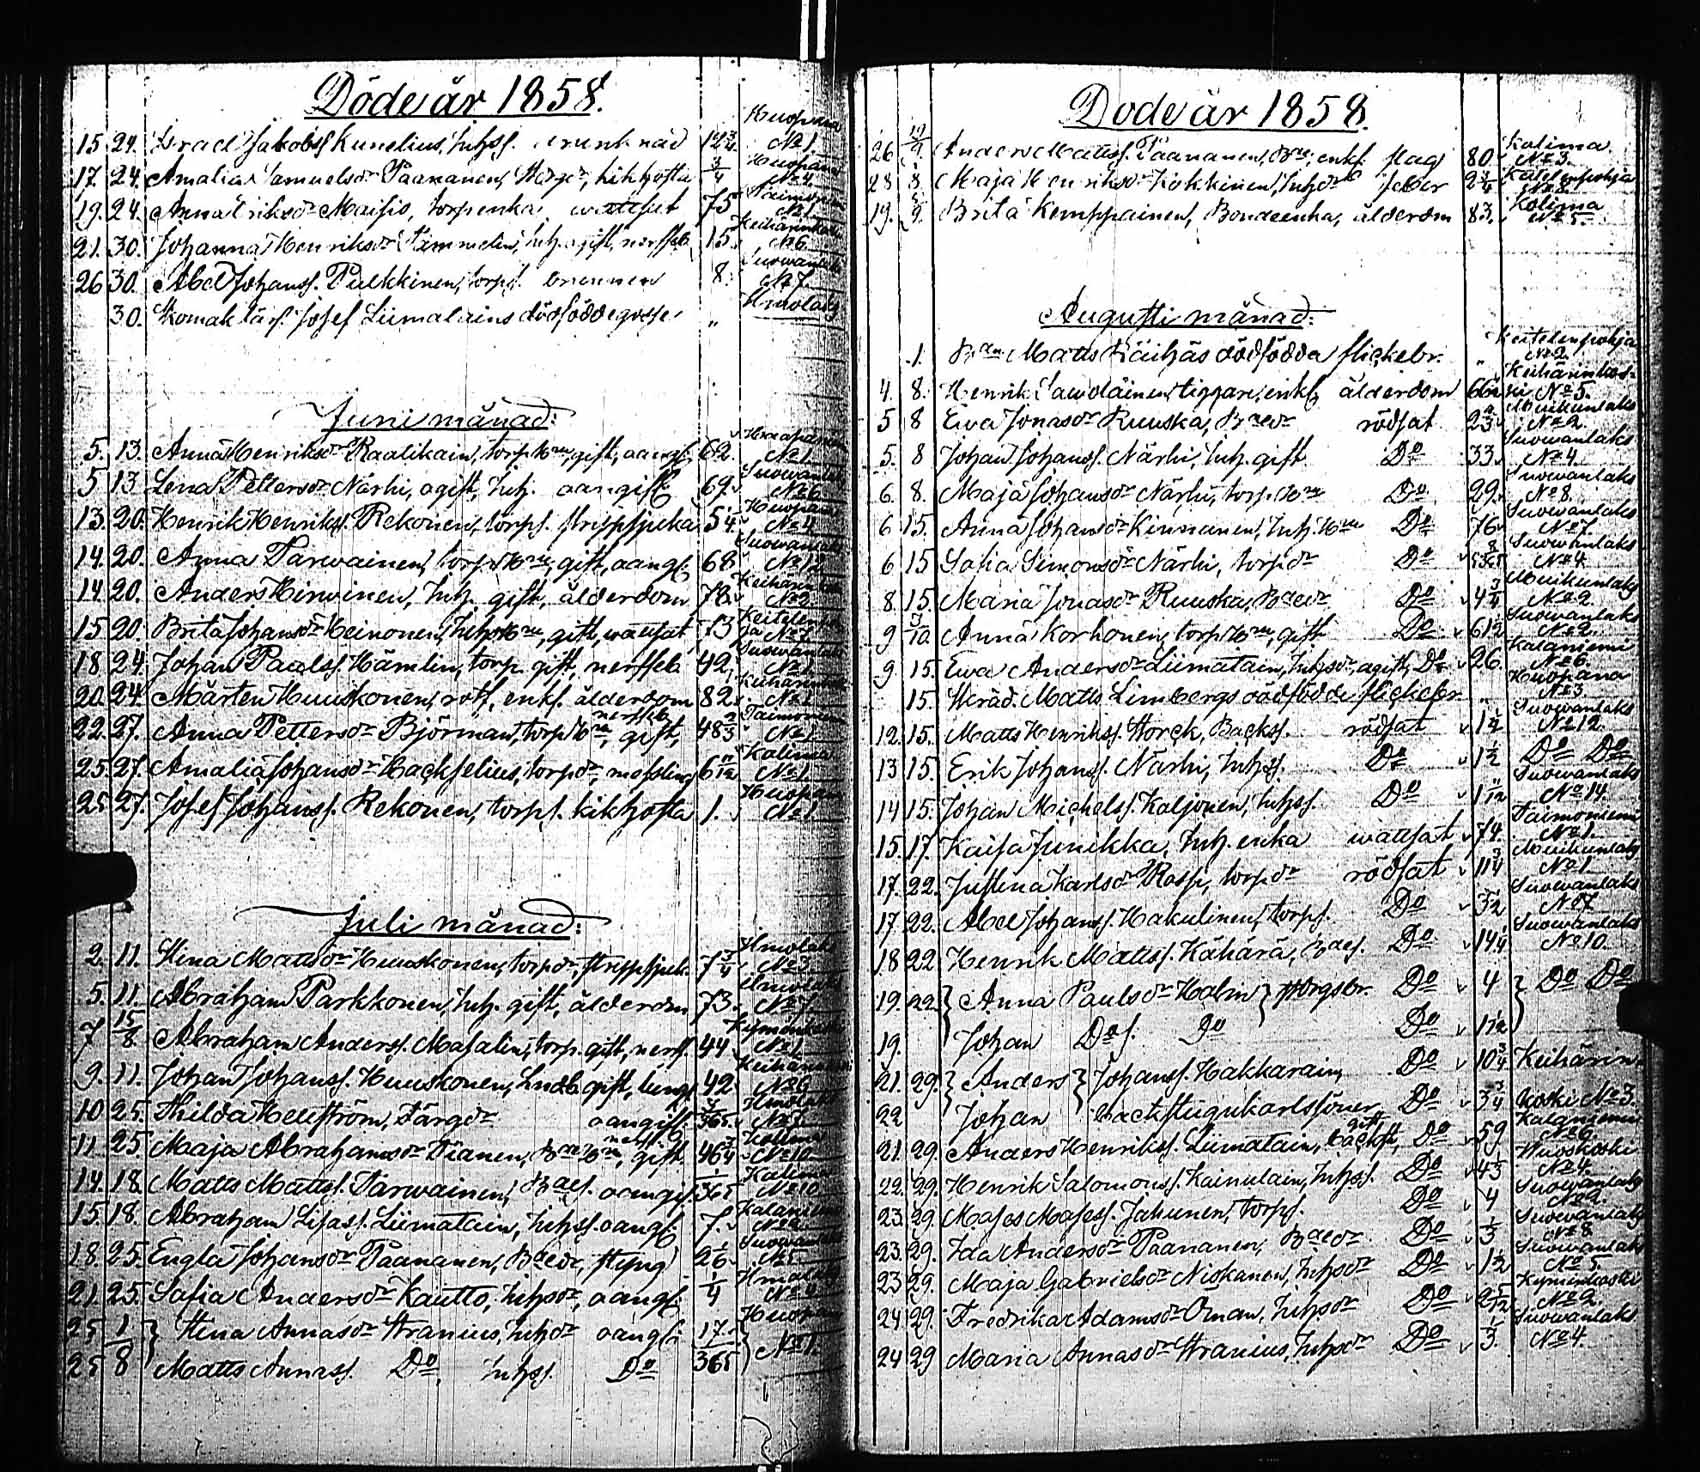 Döde år 1858.
15 24. Israel Jakobss. Kunelius, Inhss. 12 3/4 Huopana No 1.
17. 24. Amalia Samuelsdr Paananen, kikhosta 3/4 Huopana No 4.
19. 24. Anna Eriksdr Maisio, torpenka, wattsot 75 Taimoniemi No 1.
21. 30. Johanna Henriksdr Tammelin, Inh. ogift, nerffeb. 15. Keihärinkoski No 6.
26 30. Abel Johanss. Pulkkinen, torps. 8. Suowanlaks No 7.
30. Josef Liimatains dödfödde gosse " Hmolaks
Juni månad:
5. 13. Anna Henriksdr Raatikain, torp. Hru, gift, oang. 62. Haapaniemi No 1.
5 13 Lena Pettersdr Närhi, ogift, Inh. oangif. 69. Suowanlaks No 6.
13. 20. Henrik Henrikss. Rekonen, torps. strypsjuka 5 1/4 Huopana No 4
14. 20. Anna Tarwainen, torp. Hru, gift, oang. 68 Suowanlaks No 12
14 20. Anders Hirwinen, Inh. gift, ålderdom 78. Keihärinkoski No 2.
15 20. Brita Johansdr Heinonen, Inh. Hru, gift, wattsot 73 Keitelenpohja No 7.
18 24. Johan Paulss. Hämlin, torp. gift, nerffeb 42. Suowanlaks No 1.
20. 24. Mårten Huuskonen, rotf. enkl. ålderdom 82. Keihärinkoski No 1
22. 27. Anna Pettersdr Björman, torp. Hru, gift, nerffeb 48 2/3 Taimoniemi No 1.
25 27. Amalia Johansdr Hackselius, torpdr, messling 6 11/12 Kalima No 1.
25 27. Josef Johanss. Rekonen, torps. kikhosta 1. Huopana No 1.
Juli månad:
2. 11. Stina Mattsdr Huuskonen, torpdr, strypsjuk. 7 3/4 Hmolaks No 3.
5. 11. Abraham Parkkonen, Inh. gift, ålderdom 73. Hmolaks No 7.
7 15/8 Abraham Anderss. Masalin, torp. gift, nerff. 44 Kymönkoski No 1.
9. 11. Johan Johanss. Huuskonen, gift, lungs 42. Keihärinkoski No 6
10 25. Thilda Hellström, Färgdr oangif. 7/365 Hmolaks No 7.
11 25 Maja Abrahamsdr Piänen, gift 46 3/4 Kolima No 10
14. 18. Matts Mattss. Tarwainen, Baes. oangif. 1/365 Kolima No 10
15. 18. Abraham Lisass. Liimatain, Inhss. oang. 7. Kalaniemi No 2
18. 25. Engla Johansdr Paananen, Baedr, styng 2 1/6 Suowanlaks No 5
21. 25. Sofia Andersdr Kautto, Inhsdr, oang. 1/4 Hmolaks No 4
25 1/8 Stina Annasdr Stranius, Inhdr oang. 17/365 Huopana No 1.
25 8 Matts Annass. Do Inhss. Do
Döde år 1858.
26 Anders Mattss. Paananen, enkl. slag 80. Kolima No 3.
28 8 Maja Henriksdr Kokkinen, Inhdr feber 2 3/4 Keitelenpohja No 8.
19. 9. Brita Kemppainen, Bondeenka, ålderdom 83. Kolima No 5.
Augusti månad:
1. Matts Räihäs dödfödda flickebr. " Keitelenpohja No 2.
4. 8. Henrik Sawolainen, tiggare, enkl, ålderdom 66 1/2 Keihärinkoski No 5.
5 8 Ewa Jonasdr Ruuska, Baedr rödsot 2 2/3 Muikunlaks No 2.
5. 8 Johan Johanss. Närhi, Inh. gift Do 33. Suowanlaks No 4.
6. 8. Maja Johansdr Närhi, torp. Hru Do 29. Suowanlaks No 8.
6 15. Anna Johansdr Kinnunen, Inh. Hru Do 76 Suowanlaks No 7.
6 15 Sofia Simonsdr Närhi, torpdr Do Suowanlaks No 4.
8. 15. Maria Jonasdr Ruuska, Baedr Do 4 3/4 Muikunlaks No 2.
9 3/10 Anna Korhonen, torp. Hru, gift Do 61 1/2 Suowanlaks No 2.
9 15. Ewa Andersdr Liimatain, Inhsdr, ogift, Do 26. Kalaniemi No 6.
15. Matts Limbergs dödfödda flickebr. " Huopana No 3.
12. 15. Matts Henrikss. Storck, Backs. rödsot 1 1/2 Suowanlaks No 12.
13 15. Erik Johanss. Närhi, Inhss. Do 1 1/2 Do Do
14 15. Johan Michelss. Kaljonen, Inhss. Do 1 11/12 Suowanlaks No 14.
15. 17. Kaisa Junikka, Inh. enka wattsot 74. Taimoniemi No 1.
17. 22. Justina Karlsdr Rasp, torpdr rödsot 11 3/4 Muikunlaks No 1.
17 22. Abel Johanss. Hakulinen, torps. Do 3 1/2 Suowanlaks No 7
18 22. Henrik Mattss. Kähärä, Baes. Do 14 1/4 Suowanlaks No 10.
19. 22 Anna Paulsdr Holm Do 4 Do Do
19. Johan Do s. Do Do 1 1/2
21. 29. Anders Johanss. Hakkarain, Do 10 3/4 Keihärin-
22 Johan Backstugukarlssöner Do 3 3/4 koski No 3.
21. 29. Anders Henrikss. Liimatain, backst, gift Do 59 Kalaniemi No 6.
22. 29. Henrik Salomonss. Kainulain, Inhss. Do 4 1/3 Wuoskoski No 4.
23 29. Moses Mosess. Jahunen, torps. Do 4 Suowanlaks No 2.
23. 29. Ida Andersdr Paananen, Baedr Do 1/3 Suowanlaks No 8
23 29. Maja Gabrielsdr Niskanen, Inhsdr Do 1 1/2 Suowanlaks No 5.
24 29. Fredrika Adamsdr Oman, Inhsdr Do 2 5/12 Kymönkoski No 2.
24 29 Maria Annasdr Stranius, Inhsdr Do 1/3. Suowanlaks No 4.